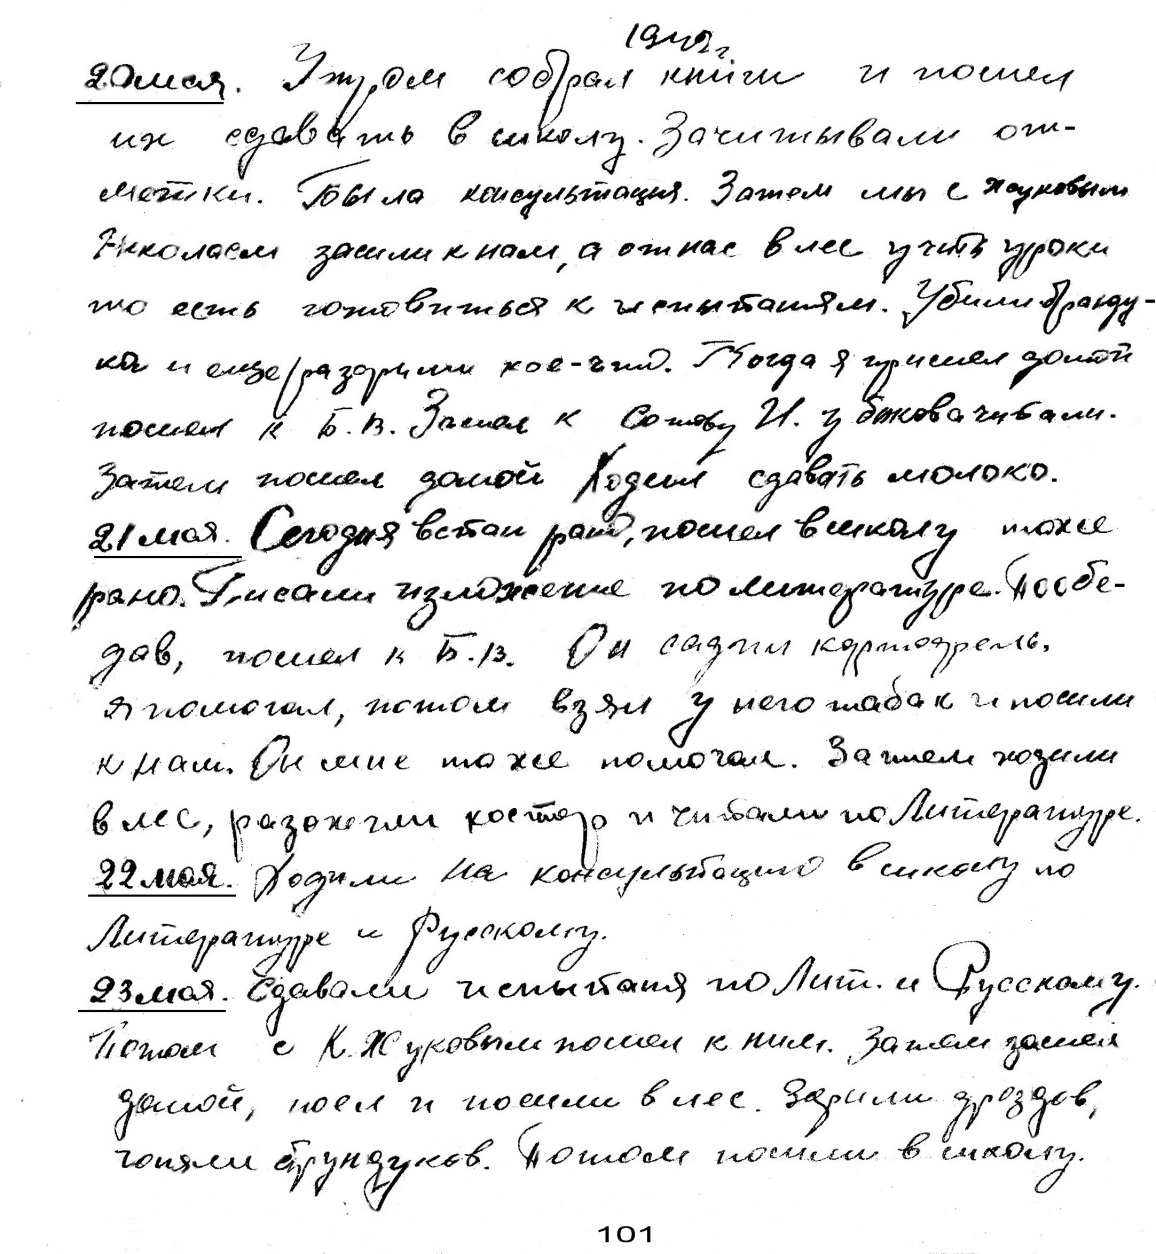 194 г.
20 мая. Утром собрал книги и пошел
их сдавать в школу. Зачитывали от-
метки. Была консультация. Затем мы с Жуковым
Николаем зашли к нам, а от нас в лес учить уроки
то есть готовиться к испытаниям. Убили бранду-
ка и еще разорили кое-что. Когда я пришел домой
пошел к Б.В. Зашел к Сотову И. у Быкова читали.
Затем пошел домой Ходил сдавать молоко.
21 мая. Сегодня встал рано, пошел в школу тоже
рано. Писали изложение по литературе. Пообе-
дав, пошел к Б.В. Он садил картофель,
я помогал, потом взял у него табак и пошли
к нам. Он мне тоже помогал. Затем ходили
в лес, разожгли костер и читали по Литературе.
22 мая. Ходили на консультацию в школу по
Литературе и Русскому.
23 мая. Сдавали испытания по Лит. и Русскому.
Потом с К. Жуковым пошел к ним. Затем зашел
домой, поел и пошли в лес. Зорили дроздов,
гоняли брундуков. Потом пошли в школу.
101